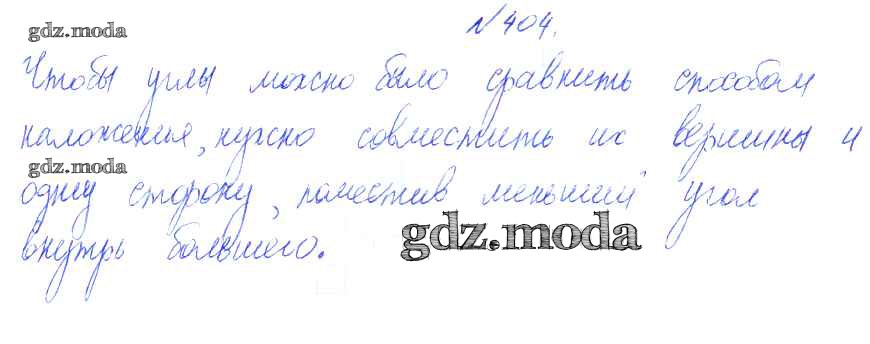 №404.
gdz.moda
Чтобы углы можно было сравнить способом
наложения, нужно совместить их вершины и
gdz.moda
одну сторону, поместив меньший угол
внутрь большего.
gdz.moda